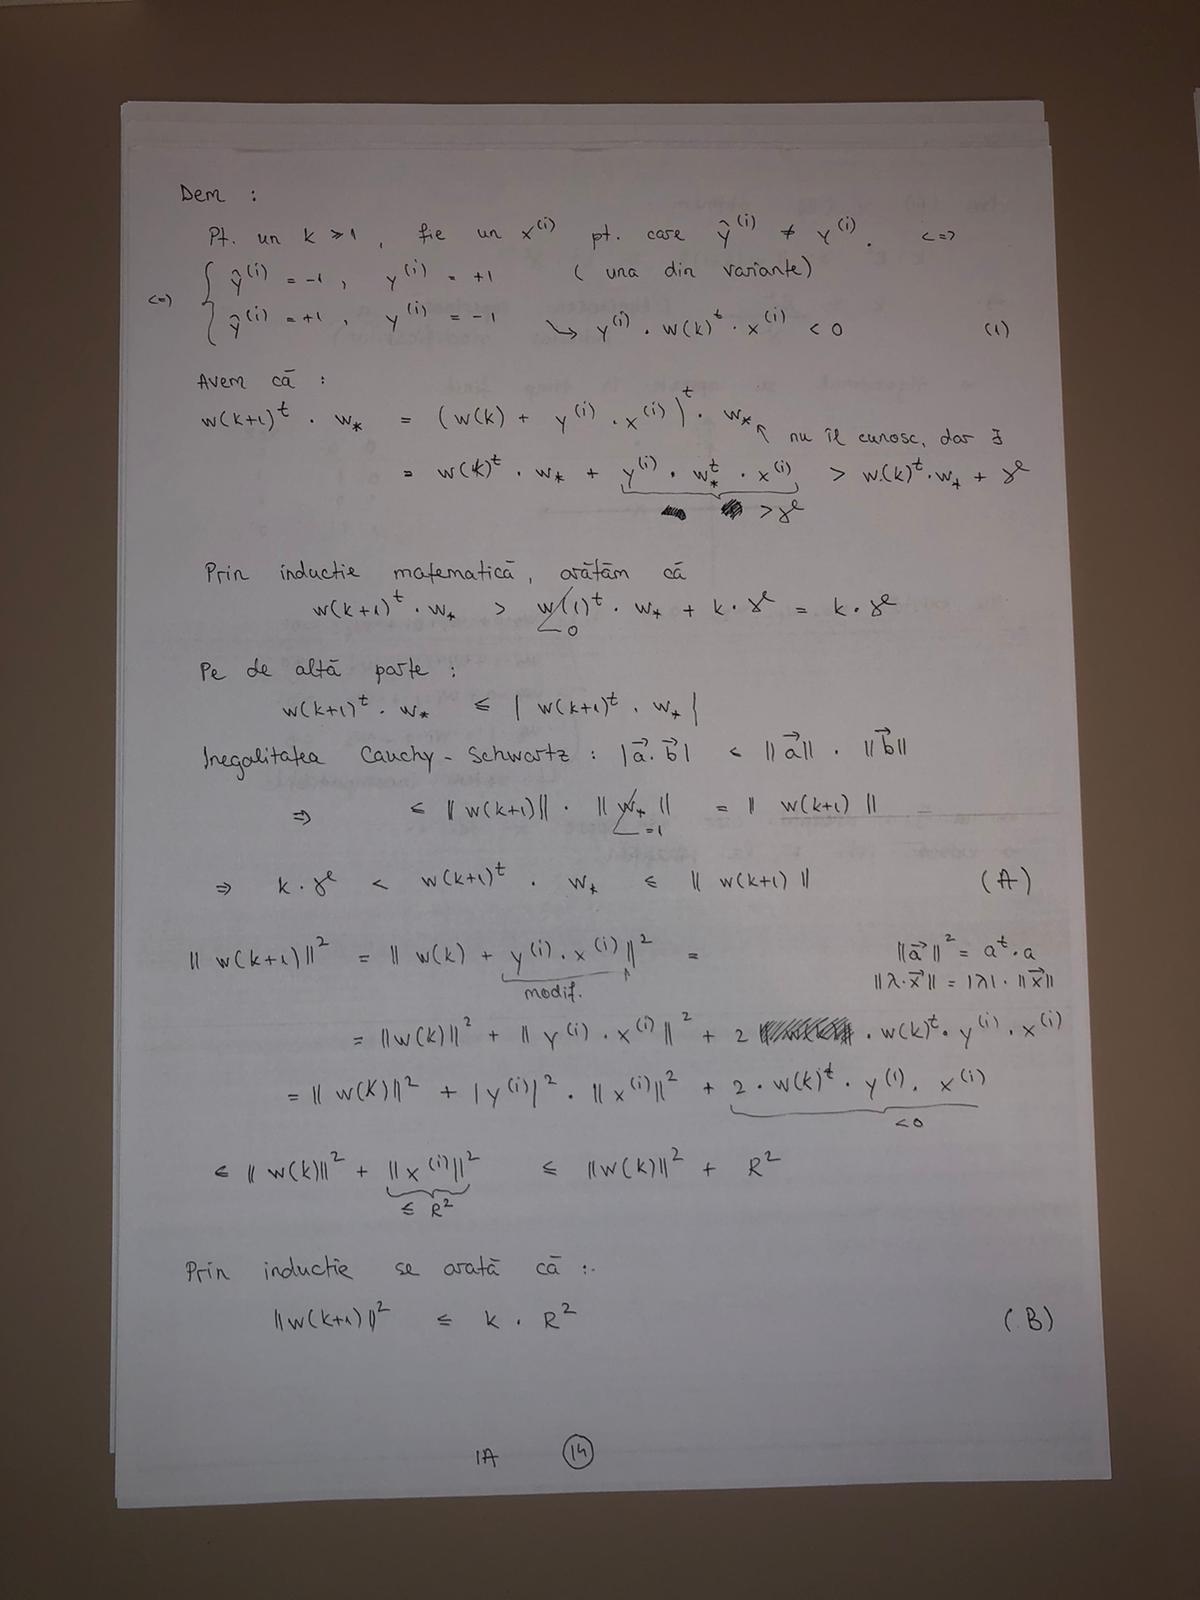 Dem :
Pt. un k ≥ 1, fie un x^(i) pt. care ŷ^(i) ≠ y^(i). <=>
<=> { ŷ^(i) = -1, y^(i) = +1 ( una din variante)
ŷ^(i) = +1, y^(i) = -1 ↳ y^(i) · w(k)^t · x^(i) < 0 (1)
Avem că :
w(k+1)^t · w_* = (w(k) + y^(i) · x^(i))^t · w_*
↖ nu îl cunosc, dar ∃
= w(k)^t · w_* + y^(i) · w_*^t · x^(i) > w(k)^t · w_* + γ
> γ
Prin inductie matematică, arătăm că
w(k+1)^t · w_* > w(1)^t · w_* + k · γ = k · γ
0
Pe de altă parte :
w(k+1)^t · w_* ≤ | w(k+1)^t · w_* |
Inegalitatea Cauchy - Schwartz : |a⃗ · b⃗| ≤ ||a⃗|| · ||b⃗||
⇒ ≤ || w(k+1) || · || w_* || = || w(k+1) ||
=1
⇒ k · γ < w(k+1)^t · w_* ≤ || w(k+1) || (A)
|| w(k+1) ||² = || w(k) + y^(i) · x^(i) ||² = ||a⃗||² = a^t · a
modif. ||λ · x⃗|| = |λ| · ||x⃗||
= ||w(k)||² + || y^(i) · x^(i) ||² + 2 · w(k)^t · y^(i) · x^(i)
= || w(k)||² + |y^(i)|² · ||x^(i)||² + 2 · w(k)^t · y^(i) · x^(i)
<0
≤ || w(k)||² + ||x^(i)||² ≤ ||w(k)||² + R²
≤ R²
Prin inductie se arată că :
||w(k+1)||² ≤ k · R² (B)
1A 14